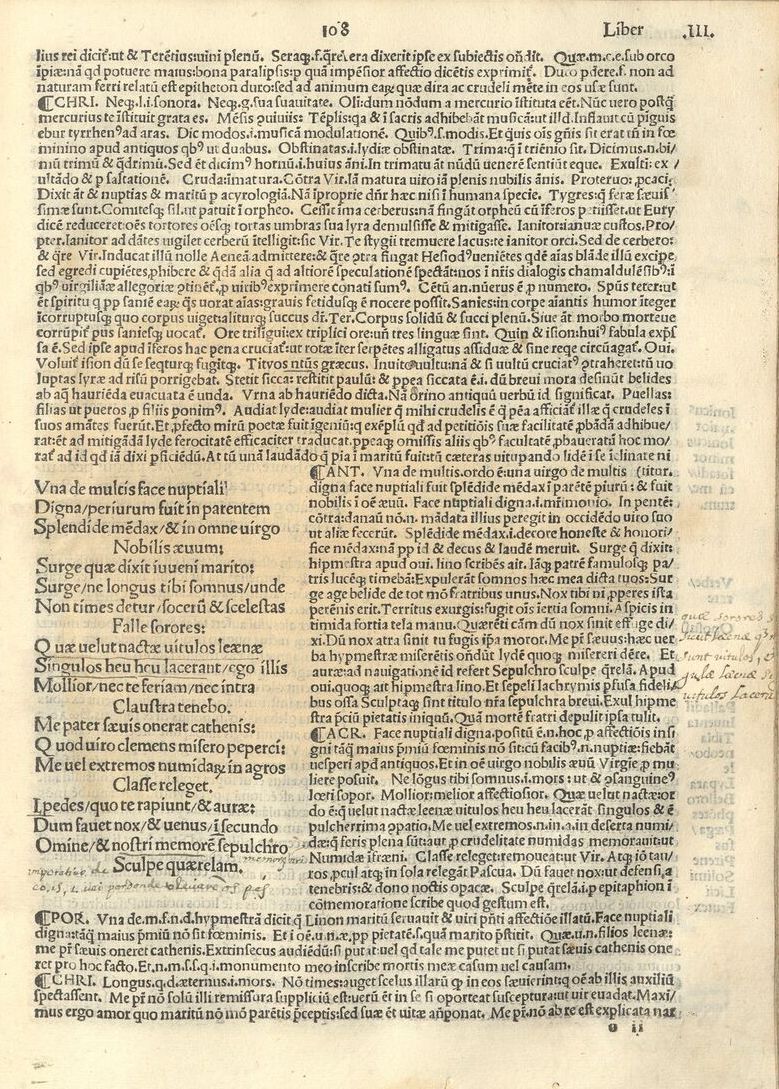 108 Liber .III.
lius rei dicit: ut & Terētius: uini plenū. Seraq;.f. q̄rela era dixerit ipse ex subiectis on̄dit. Quæ.m.c.e. sub orco
īpiæ: nā qd potuere maius: bona paralipsis: p quā impēsior affectio dicētis exprimit. Duro pdere.f. non ad
naturam ferri relatū est epitheton duro: sed ad animum eaꝝ quæ dira ac crudeli mēte in eos usæ sunt.
¶CHRI. Neq;.l.i. sonora. Neq;.g. sua suauitate. Oli: dum nōdum a mercurio īstituta eēt. Nūc uero postq̄
mercurius te īstituit grata es. Mēsis ⁊uiuiis: Tēplisq;: q̄a & ī sacris adhibebāt musicā: ut illd. Inflauit cū piguis
ebur tyrrhenꝰ ad aras. Dic modos.i. musicā modulationē. Quibꝰ.s. modis. Et q̄uis oīs gn̄is sit erat tn̄ in fœ
minino apud antiquos qbꝰ ut duabus. Obstinatas.i. lydiæ obstinatæ. Trima: q̄ ī triēnio sit. Dicimus.n. bi/
mū trimū & q̄drimū. Sed ēt dicimꝰ hornū.i. huius āni. In trimatu āt nūdū uenerē sentiūt eque. Exulti: ex/
ultādo & p saltationē. Cruda: īmatura. Cōtra Vir. Iā matura uiro iā plenis nubilis ānis. Proteruo: pcaci.
Dixit āt & nuptias & maritū p acyrologiā. Nā īproprie dn̄r hæc nisi ī humana specie. Tygres: q̄ feræ sæuis/
simæ sunt. Comitesq; sil. ut patuit ī orpheo. Cessit īma cerberus: nā fingūt orpheū cū īferos petiisset. ut Eury
dicē reduceret: oēs tortores oēsq; tortas umbras sua lyra demulsisse & mitigasse. Ianitor: ianuæ custos. Pro/
pter. Ianitor ad dātes uigilet cerberū ītelligit: sic Vir. Te stygii tremuere lacus: te ianitor orci. Sed de cerbero:
& q̄re Vir. Inducat illū nolle Aeneā admittere: & q̄re ⁊tra fingat Hesiodꝰ ueniētes qdē aīas blāde illū excipe
sed egredi cupiētes, phibere & q̄dā alia q̄ ad altiorē speculationē spectāt: nos ī nr̄is dialogis chamaldulēsibꝰ: ī
qbꝰ uirgiliāæ allegoriæ ⁊tinēt, p uiribꝰ exprimere conati sumꝰ. Cētū an. nūerus ē p numero. Spūs teter: ut
ēt spiritu q pp saniē eaꝝ q̄s uorat aīas: grauis fetidusq; ē nocere possit. Sanies: in corpe aīantis humor īteger
īcorruptusq; quo corpus uiget: aliturq; succus dī. Ter. Corpus solidū & succi plenū. Siue āt morbo morteue
corrūpit pus saniesq; uocat. Ore trilīgui: ex triplici ore: un̄ tres linguæ sint. Quin & ision: huiꝰ fabula expr̄s
sa ē. Sed ipse apud īferos hac pena cruciat: ut rotæ īter serpētes alligatus assiduæ & sine reqe circūagat. Oui.
Voluit ision dū se seqturq; fugitq;. Tityos ntūs græcus. Inuito uultu: nā & si uultū cruciatꝰ ⁊traheret: tn̄ uo
luptas lyræ ad risū porrigebat. Stetit sicca: restitit paulū: & ppea siccata ē.i. dū breui mora desinūt belides
ab aq̄ hauriēda euacuata ē unda. Vrna ab hauriēdo dicta. Nā ōrino antiquū uerbū id significat. Puellas:
filias ut pueros p filiis ponimꝰ. Audiat lyde: audiat mulier q̄ mihi crudelis ē q̄ pēa afficiāt illæ q̄ crudeles ī
suos amātes fuerūt. Et, pfecto mirū poetæ fuit īgeniū: q exēplū qd ad petitiōis suæ facilitatē, pbādā adhibue/
rat: ēt ad mitigādā lyde ferocitatē efficaciter traducat. ppeaq; omissis aliis qbꝰ facultatē, pbauerat ī hoc mo/
rat ad id qd iā dixi psiciēdū. At tū unā laudādo q̄ pia ī maritū fuit: tū cæteras uitupando lidē ī se īclinate ni
¶ANT. Vna de multis. ordo ē: una uirgo de multis (titur.
digna face nuptiali fuit splēdide mēdax ī parētē piurū: & fuit
nobilis ī oē æuū. Face nuptiali digna.i. mr̄imonio. In pentē:
cōtra: danaū nō.n. mādata illius peregit in occidēdo uiro suo
ut aliæ fecerūt. Splēdide mēdax.i. decore honeste & honori/
fice mēdax: nā pp id & decus & laudē meruit. Surge q̄ dixit:
hipmestra apud oui. lino scribēs ait. Iāq; patrē famulosq; pa/
tris lucēq; timebā: Expulerāt somnos hæc mea dicta tuos: Sur
ge age belide de tot mō fratribus unus. Nox tibi ni, pperes ista
perēnis erit. Territus exurgis: fugit oīs īertia somni. Aspicis in
timida fortia tela manu. Quærēti cām dū nox sinit effuge di/
xi. Dū nox atra sinit tu fugis ipa moror. Me pr̄ sæuus: hæc uer
ba hypmestræ miserētis on̄dūt lydē quoq; misereri dēre. Et
auræ: ad nauigationē id refert Sepulchro sculpe q̄relā. Apud
oui. quoq; ait hipmestra lino. Et sepeli lachrymis pfusa fideli
bus ossa Sculptaq; sint titulo nr̄a sepulchra breui. Exul hipme
stra p̄ciū pietatis iniquū. Quā mortē fratri depulit ipsa tulit.
¶ACR. Face nuptiali digna. positū ē.n. hoc, p affectiōis insi
gni tāq̄ maius p̄miū fœminis nō sit: cū facibꝰ.n. nuptiæ: fiebāt
uesperi apd antiquos. Et in oē uirgo nobilis æuū Virgīe p mu
liere posuit. Ne lōgus tibi somnus.i. mors: ut & ⁊sanguineꝰ
lœti sopor. Mollior: melior affectiosior. Quæ uelut nactæ: or
do ē: q̄ uelut nactæ leenæ uitulos heu heu lacerāt singulos & ē
pulcherrima ⁊patio. Me uel extremos.n. in.a. in deserta numi/
dæ: q̄ feris plena sūt: aut p crudelitate numidas memorauit: ut
Numidæ īfræni. Classe releget: remoueat: ut Vir. Atq; iō tau/
ros, pcul atq; in sola relegāt Pascua. Dū fauet nox: ut defensi, a
tenebris: & dono noctis opacæ. Sculpe q̄relā.i. epitaphion ī
cōmemoratione scribe quod gestum est.
Vna de multis face nuptiali
Digna/periurum fuit in parentem
Splendide mēdax/& in omne uirgo
Nobilis æuum:
Surge quæ dixit iuueni marito:
Surge/ne longus tibi somnus/unde
Non times detur/socerū & scelestas
Falle sorores:
Quæ uelut nactæ uitulos leænæ
Singulos heu heu lacerant/ego illis
Mollior/nec te feriam/nec intra
Claustra tenebo.
Me pater sæuis onerat cathenis:
Quod uiro clemens misero peperci:
Me uel extremos numidaꝝ in agros
Classe releget.
I pedes/quo te rapiunt/& auræ:
Dum fauet nox/& uenus/ī secundo
Omine/& nostri memorē sepulchro
Sculpe quærelam.
¶POR. Vna de.m.f.n.d. hypmestrā dicit q̄ Linon maritū seruauit & uiri pn̄ti affectiōe illatū. Face nuptiali
digna: tāq̄ maius p̄miū nō sit fœminis. Et ī oē.u.n.æ. pp pietatē.s. quā marito p̄stitit. Quæ.u.n. filios leenæ:
me pr̄ sæuis oneret cathenis. Extrinsecus audiēdū: si putat: uel qd tale me putet ut si putat sæuis cathenis one
ret pro hoc facto. Et.n.m.s.s.q.i. monumento meo inscribe mortis meæ casum uel causam.
¶CHRI. Longus.q.d. æternus.i. mors. Nō times: auget scelus illarū q in eos sæuierint: q oē ab illis auxiliū
spectassent. Me pr̄ nō solū illi remissura suppliciū est: uerū ēt in se si oporteat susceptura: ut uir euadat. Maxi/
mus ergo amor quo maritū nō mō parētis p̄ceptis: sed suæ ēt uitæ an̄ponat. Me pr̄. nō ab re est explicata nar
o ii